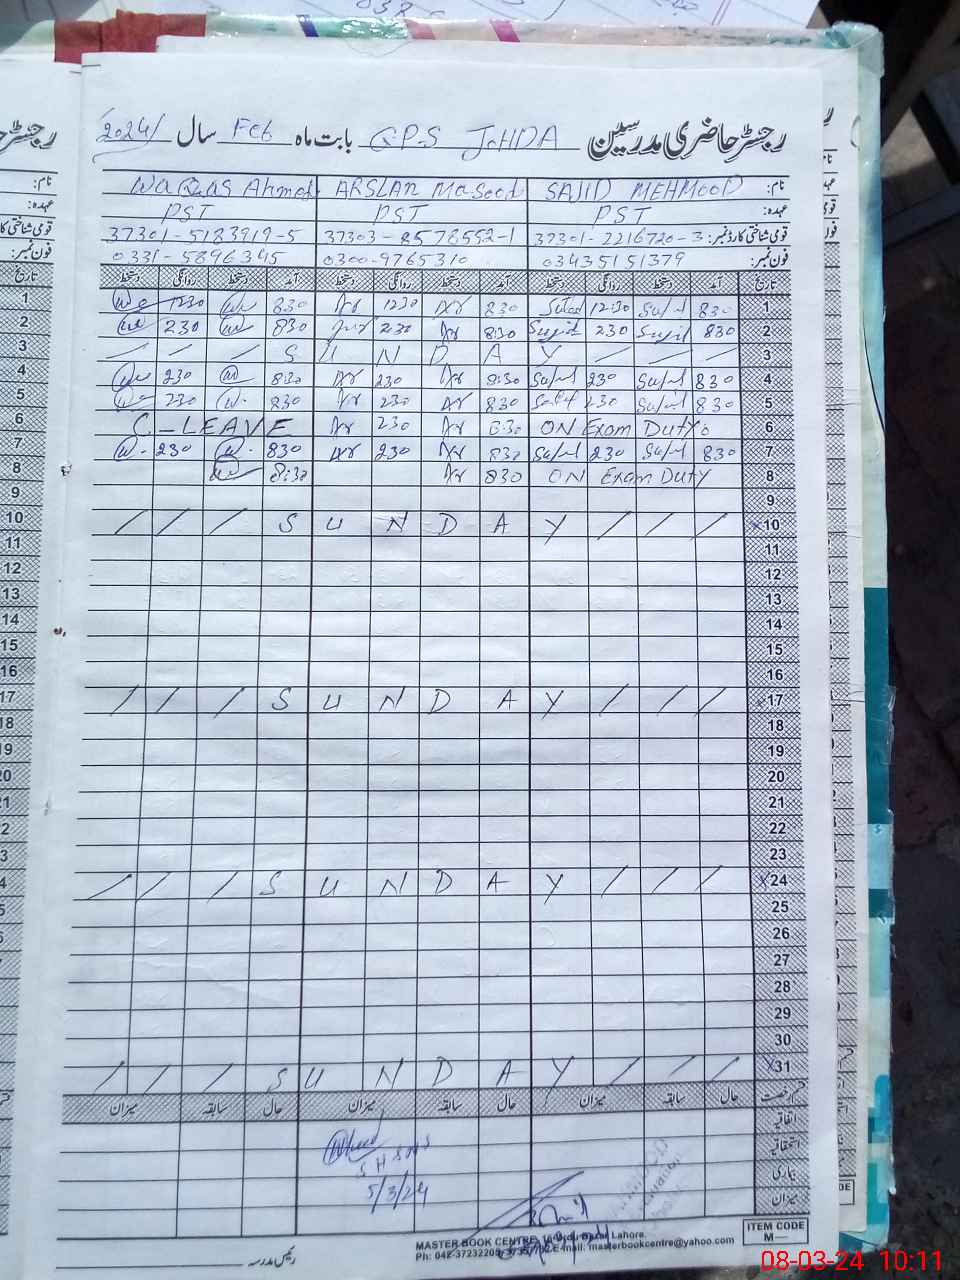 رجسٹر حاضری مدرسین GPS JOHDA بابت ماہ Feb سال 2024
نام: SAJID MEHMOOD ARSLAN Masood Waqas Ahmed
عہدہ: PST PST PST
قومی شناختی کارڈ نمبر: 37301-2216720-3 37303-8578552-1 37301-5183919-5
فون نمبر: 03435151379 0300-9765310 0331-5896345
تاریخ آمد دستخط روانگی دستخط آمد دستخط روانگی دستخط آمد دستخط روانگی دستخط تاریخ
1 1230 830 1230 830 12:30 830 1
2 230 830 230 8:30 230 830 2
3 SUNDAY 3
4 230 8:30 230 8:30 230 830 4
5 230 830 230 830 230 830 5
6 C-LEAVE 230 8:30 ON Exam Duty. 6
7 230 830 230 830 230 830 7
8 8:30 830 ON Exam Duty 8
9
10 SUNDAY x10
11 11
12 12
13 13
14 14
15 15
16 16
17 SUNDAY 17
18 18
19
20
21
22
23
SUNDAY x24
25
26
27
28
29
30
SUNDAY x31
رخصت حال سابقہ میزان حال سابقہ میزان حال سابقہ میزان
اتفاقیہ
استحقاقیہ
بیماری
میزان
5/3/24
رئیس مدرسہ
MASTER BOOK CENTRE Urdu Bazar Lahore.
E-mail: masterbookcentre@yahoo.com
ITEM CODE
M—
08-03-24 10:11